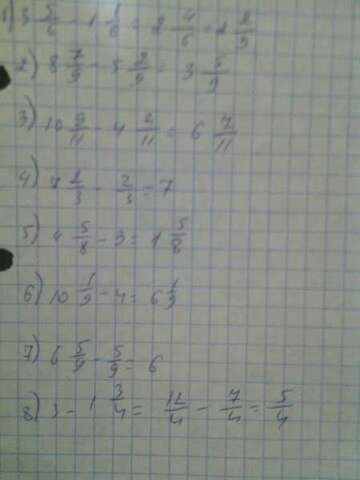 1) 3 5/6 - 1 1/6 = 2 4/6 = 2 2/3
2) 8 7/9 - 5 2/9 = 3 5/9
3) 10 9/11 - 4 2/11 = 6 7/11
4) 7 2/3 - 2/3 = 7
5) 4 5/8 - 3 = 1 5/8
6) 10 1/9 - 4 = 6 1/9
7) 6 5/9 - 5/9 = 6
8) 3 - 1 3/4 = 12/4 - 7/4 = 5/4